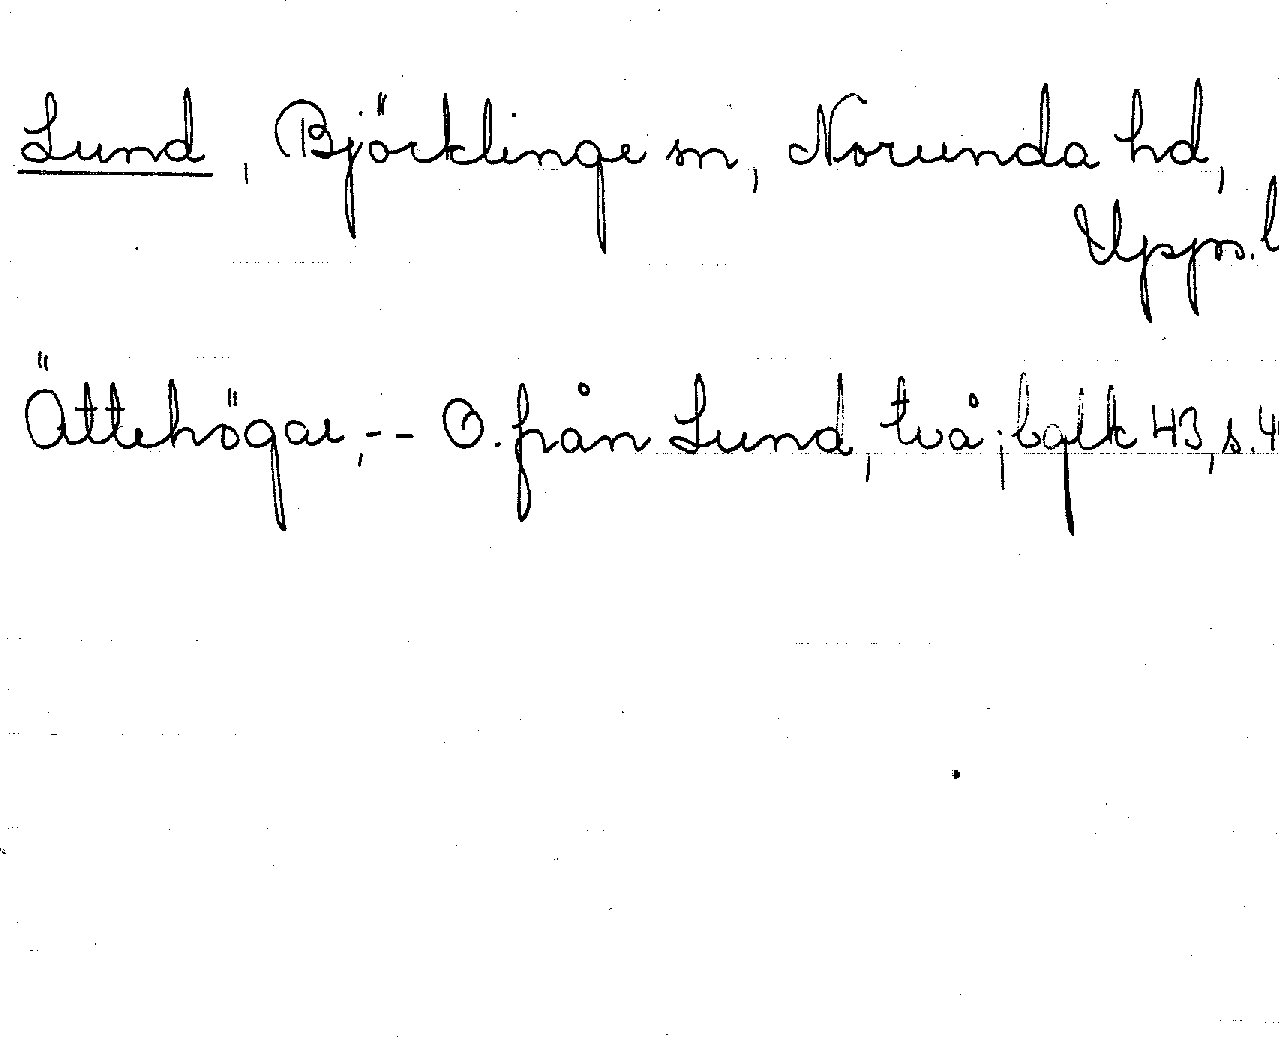 Lund, Björklinge sn, Norunda hd,
Upps. l
Ättehögar, -- O. från Lund, två; bqlk 43, s. 4